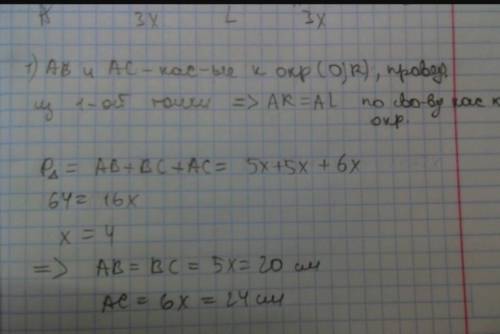 3x L 3x
1) AB и AC – кас-ые к окр (O;R), провед
из 1-ой точки => AK = AL по сво-ву кас к
окр.
P△ = AB + BC + AC = 5x + 5x + 6x
64 = 16x
x = 4
=> AB = BC = 5x = 20 см
AC = 6x = 24 см